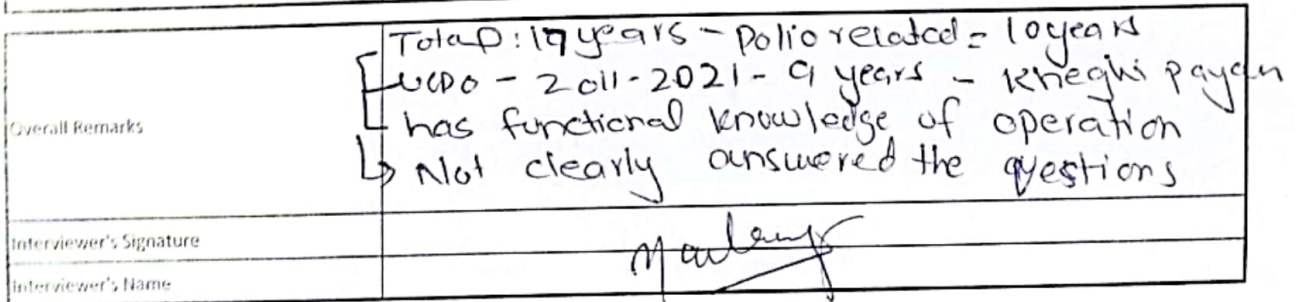 Total: 19 years - Polio related = 10 years
UCPO - 2011-2021 - 9 years - Kheghi payan
Overall Remarks
has functional knowledge of operation
Not clearly answered the questions
Interviewer's Signature
Interviewer's Name